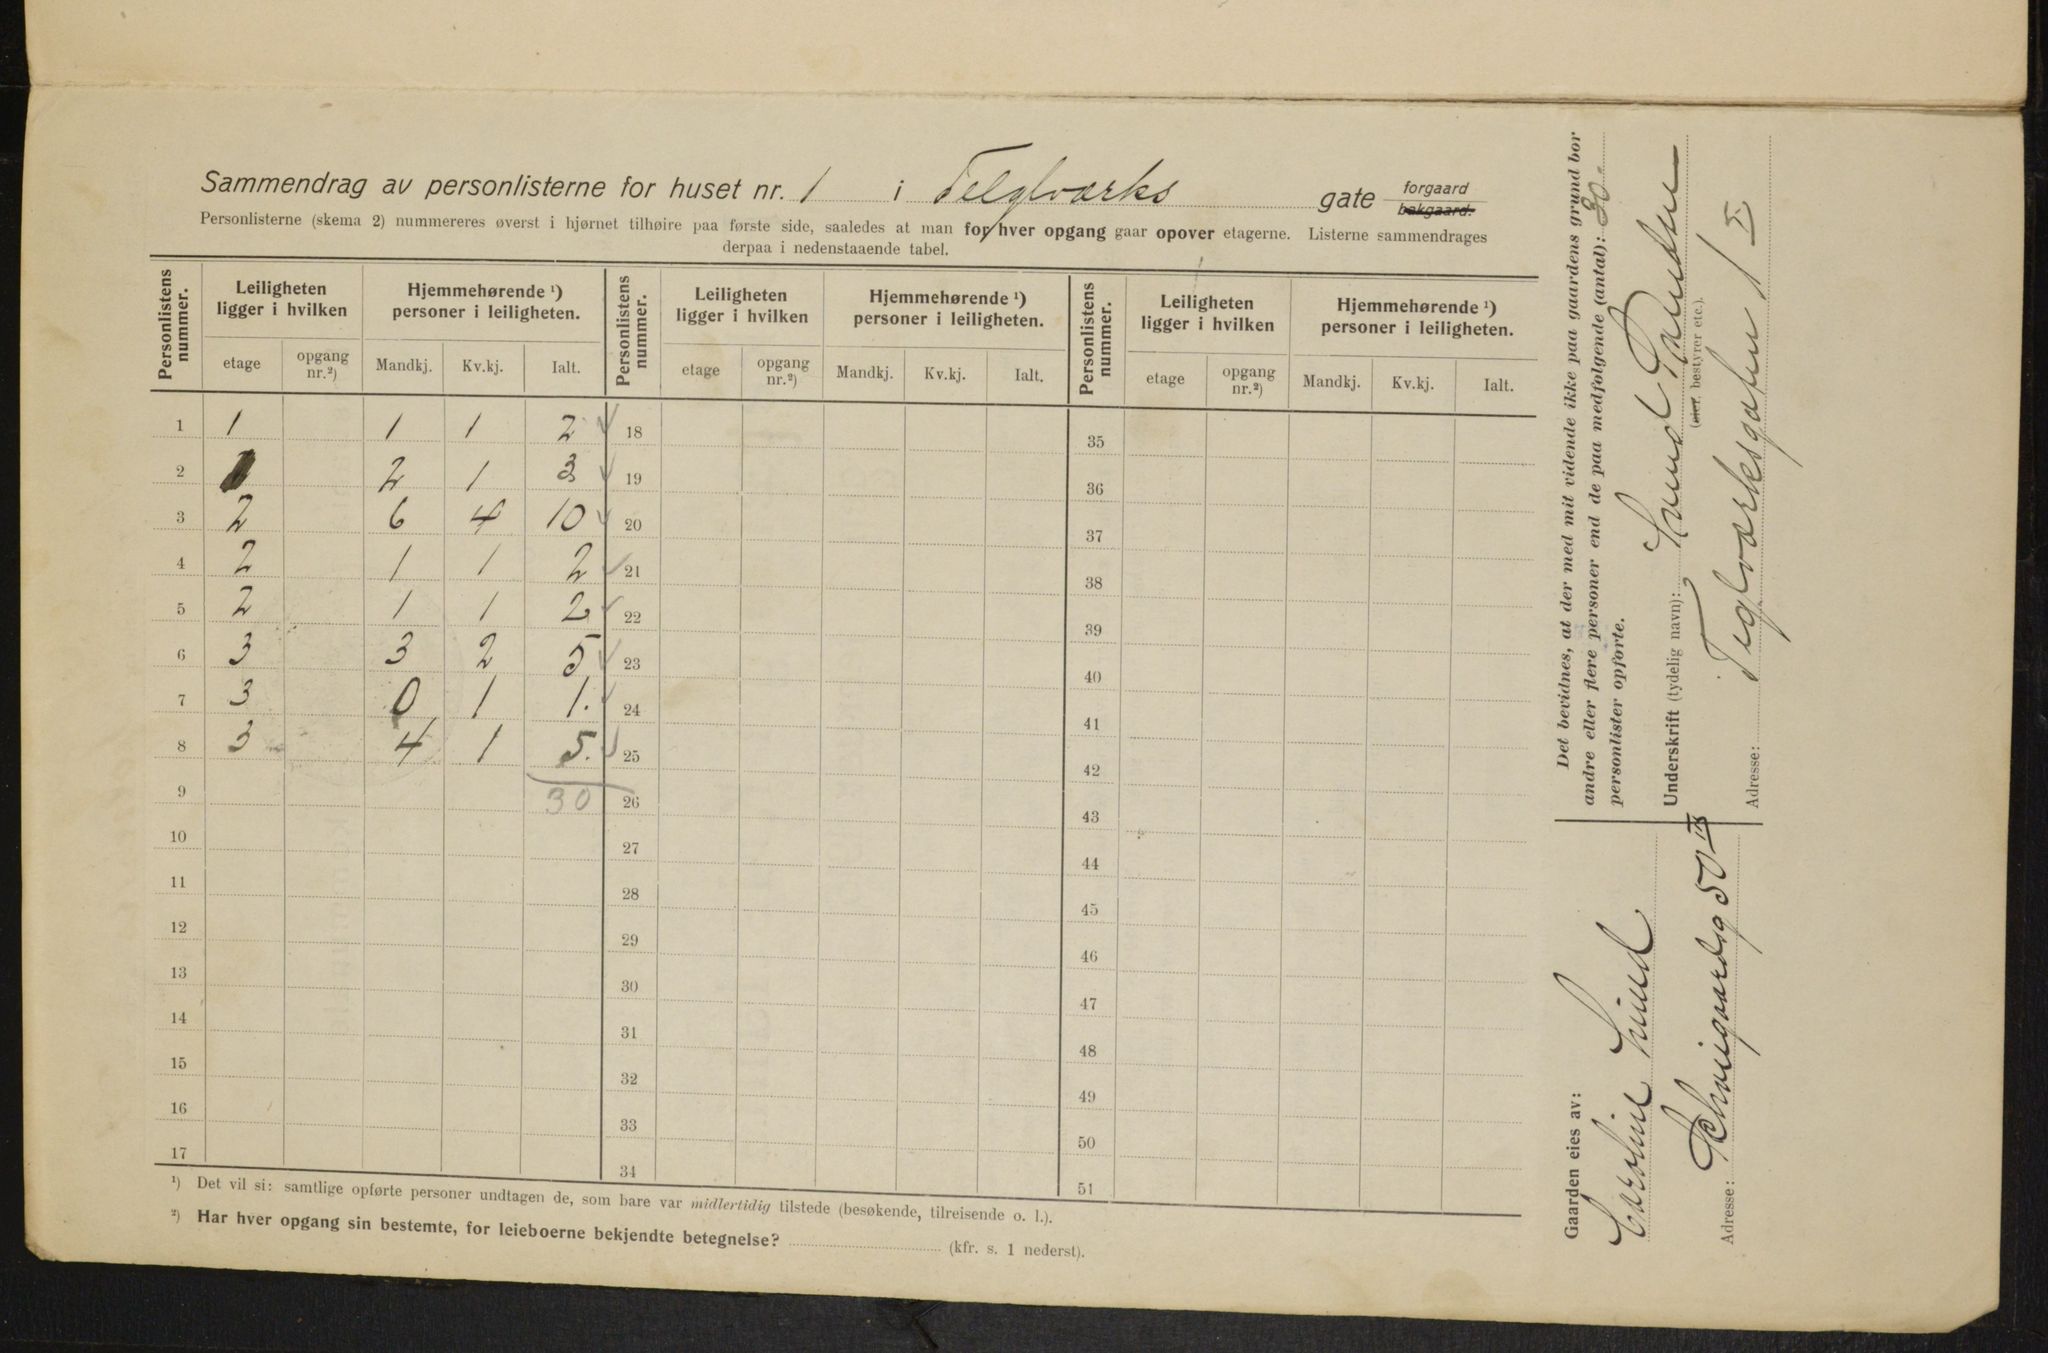 Sammendrag av personlisterne for huset nr. 1 i Teglværks gate forgaard bakgaard.
Personlisterne (skema 2) nummereres øverst i hjørnet tilhøire paa første side, saaledes at man for hver opgang gaar opover etagerne. Listerne sammendrages
derpaa i nedenstaaende tabel.
Personlistens nummer. Leiligheten ligger i hvilken Hjemmehørende ¹) personer i leiligheten. Personlistens nummer. Leiligheten ligger i hvilken Hjemmehørende ¹) personer i leiligheten. Personlistens nummer. Leiligheten ligger i hvilken Hjemmehørende ¹) personer i leiligheten.
etage opgang nr.²) Mandkj. Kv.kj. Ialt. etage opgang nr.²) Mandkj. Kv.kj. Ialt. etage opgang nr.²) Mandkj. Kv.kj. Ialt.
1 1 1 1 2 18 35
2 2 1 3 19 36
3 2 6 4 10 20 37
4 2 1 1 2 21 38
5 2 1 1 2 22 39
6 3 3 2 5 23 40
7 3 0 1 1. 24 41
8 3 4 1 5. 25 42
9 30 26 43
10 27 44
11 28 45
12 29 46
13 30 47
14 31 48
15 32 49
16 33 50
17 34 51
¹) Det vil si: samtlige opførte personer undtagen de, som bare var midlertidig tilstede (besøkende, tilreisende o. l.).
²) Har hver opgang sin bestemte, for leieboerne bekjendte betegnelse? (kfr. s. 1 nederst).
Det bevidnes, at der med mit vidende ikke paa gaardens grund bor
andre eller flere personer end de paa medfølgende (antal): 30.
personlister opførte.
Underskrift (tydelig navn): Knud
(eier, bestyrer etc.).
Teglværksgaten 1 I
Adresse:
Gaarden eies av:
Caroline Lund
Adresse: 50 III